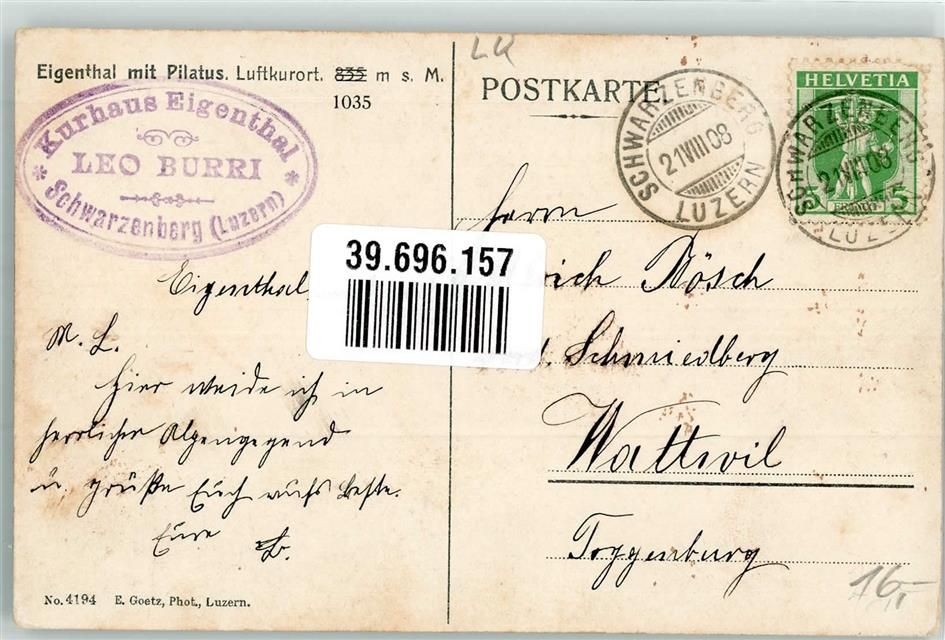 Eigenthal mit Pilatus. Luftkurort. 835 m s. M.
1035
Kurhaus Eigenthal
LEO BURRI
Schwarzenberg (Luzern)
Eigenthal
M. L.
Hier weide ich in
herrlicher Alpengegend
u. grüße Euch aufs beste.
Eure
No. 4194 E. Goetz, Phot., Luzern.
LU
POSTKARTE.
SCHWARZENBERG
21 VIII 08
LUZERN
HELVETIA
5 5
SCHWARZENBERG
21 VIII 08
LUZERN
39.696.157
Herrn
Rösch
Schmiedberg
Wattwil
Toggenburg
16,-